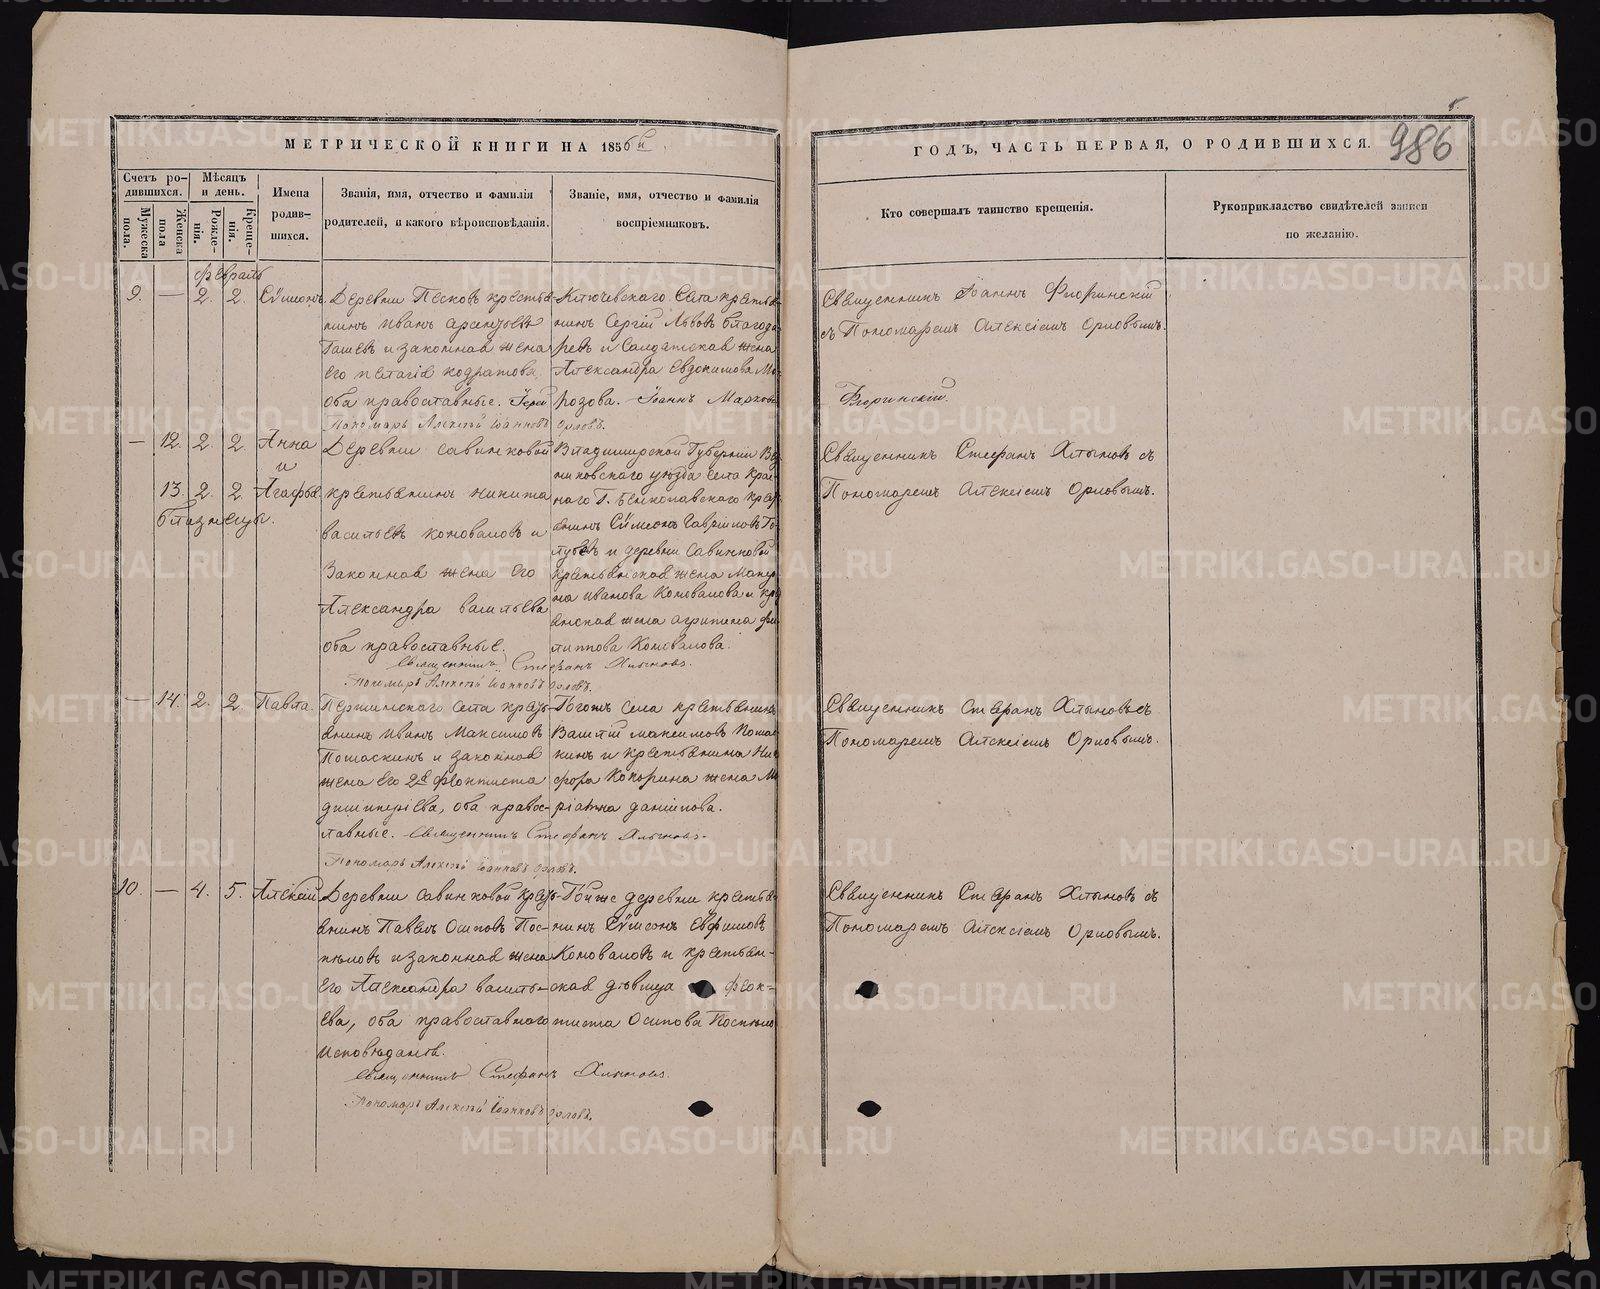 МЕТРИЧЕСКОЙ КНИГИ НА 1856й
ГОДЪ, ЧАСТЬ ПЕРВАЯ, О РОДИВШИХСЯ.
986
Счетъ ро-
дившихся.
Мужеска
пола.
Женска
пола
Мѣсяцъ
и день.
Рожде-
нія.
Креще-
нія.
Имена
родив-
шихся.
Званія, имя, отчество и фамилія
родителей, и какого вѣроисповѣданія.
Званіе, имя, отчество и фамилія
воспріемниковъ.
Кто совершалъ таинство крещенія.
Рукоприкладство свидѣтелей записи
по желанію.
февраль
9. — 2. 2. Сѵмеонъ
Деревни Песковъ крестья-
нинъ Иванъ
и законная жена
его Пелагія Кодратова
оба православные. Іерей Іоаннъ Марковъ Флоринскій
Пономарь Алексѣй Іоанновъ Орловъ.
Ключевского села крестья-
нинъ Сергій Львовъ Благода-
ревъ и Солдатская жена
Александра Евдокимова Мо-
розова.
Священникъ Іоаннъ Флоринскій
съ Пономаремъ Алексіемъ Орловымъ.
— 12. 2. 2. Анна
и
13. 2. 2. Агафья
близнецы.
Деревни Савинковой
крестьянинъ Никита
Васильевъ Коновалов и
Законная жена его
Александра Васильева
оба православные.
Священникъ Стефанъ Хлыновъ.
Пономарь Алексѣй Іоанновъ Орловъ.
Владимирской Губерніи Вяз-
никовского уѣзда села
крес-
Сѵмеонъ Гавріиловъ Го-
лубевъ и деревни Савинковой
крестьянская жена
Иванова Коновалова и кре
янская жена Агрипина Фи-
липпова Коновалова.
Священникъ Стефанъ Хлыновъ съ
Пономаремъ Алексіемъ Орловымъ.
— 14. 2. 2. Павла.
Першинского села крес-
янинъ Иванъ Максимовъ
Поташкинъ и законная
жена его 2я Феоктиста
Димитріева, оба правос-
лавные. Священникъ Стефанъ Хлыновъ.
Пономарь Алексѣй Іоанновъ Орловъ.
Тогожъ села крестьянинъ
Василій Максимовъ Пота
кинъ и крестьянина Ни
фора Кокорина жена Ма
ріамна Даніилова.
Священникъ Стефанъ Хлыновъ съ
Пономаремъ Алексіемъ Орловымъ.
10. — 4. 5. Алексѣй
Деревни Савинковой крес-
янинъ Павелъ Осиповъ Пос-
пѣловъ и законная жена
его Александра Василь-
ева, оба православного
исповѣданія.
Священникъ Стефанъ Хлыновъ.
Пономарь Алексѣй Іоанновъ Орловъ.
Тойже деревни крестья-
нинъ Сѵмеонъ Евфимовъ
Коноваловъ и крестьян-
ская дѣвица Феок-
тиста Осипова Поспѣло
Священникъ Стефанъ Хлыновъ съ
Пономаремъ Алексіемъ Орловымъ.
METRIKI.GASO-URAL.RU